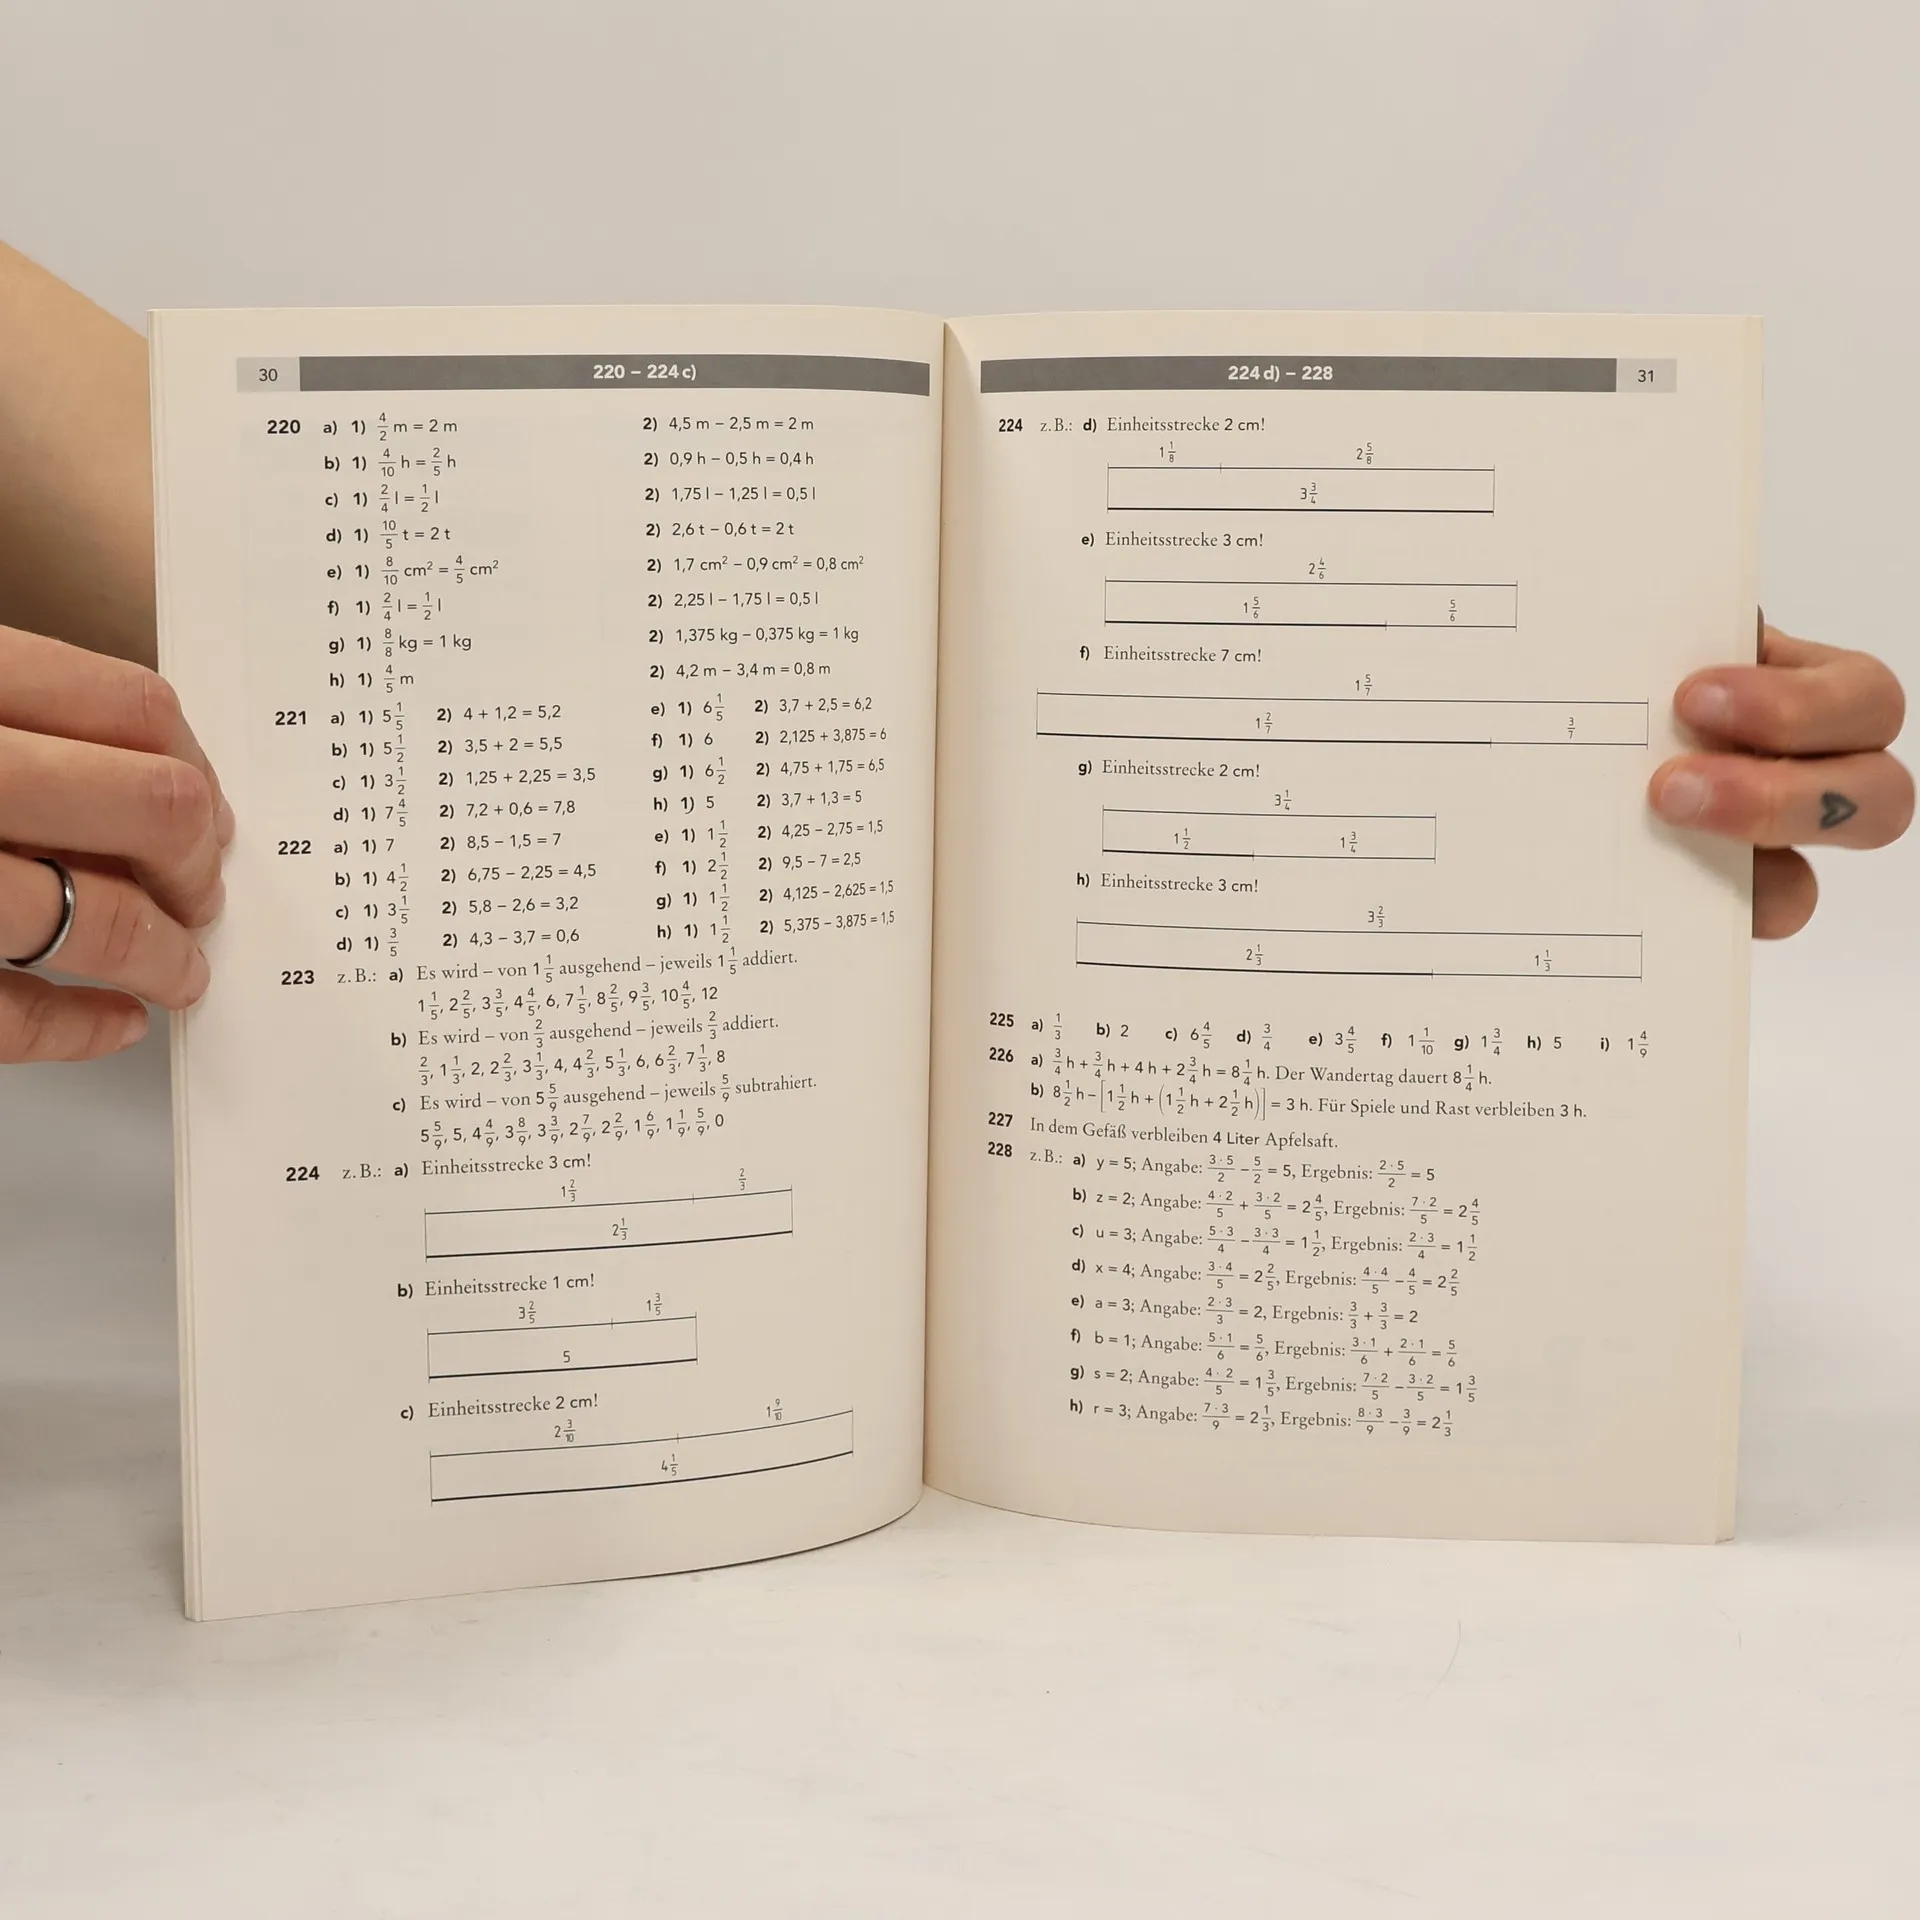 30 220 – 224 c)
220 a) 1) 4/2 m = 2 m 2) 4,5 m – 2,5 m = 2 m
b) 1) 4/10 h = 2/5 h 2) 0,9 h – 0,5 h = 0,4 h
c) 1) 2/4 l = 1/2 l 2) 1,75 l – 1,25 l = 0,5 l
d) 1) 10/5 t = 2 t 2) 2,6 t – 0,6 t = 2 t
e) 1) 8/10 cm² = 4/5 cm² 2) 1,7 cm² – 0,9 cm² = 0,8 cm²
f) 1) 2/4 l = 1/2 l 2) 2,25 l – 1,75 l = 0,5 l
g) 1) 8/8 kg = 1 kg 2) 1,375 kg – 0,375 kg = 1 kg
h) 1) 4/5 m 2) 4,2 m – 3,4 m = 0,8 m
221 a) 1) 5 1/5 2) 4 + 1,2 = 5,2 e) 1) 6 1/5 2) 3,7 + 2,5 = 6,2
b) 1) 5 1/2 2) 3,5 + 2 = 5,5 f) 1) 6 2) 2,125 + 3,875 = 6
c) 1) 3 1/2 2) 1,25 + 2,25 = 3,5 g) 1) 6 1/2 2) 4,75 + 1,75 = 6,5
d) 1) 7 4/5 2) 7,2 + 0,6 = 7,8 h) 1) 5 2) 3,7 + 1,3 = 5
222 a) 1) 7 2) 8,5 – 1,5 = 7 e) 1) 1 1/2 2) 4,25 – 2,75 = 1,5
b) 1) 4 1/2 2) 6,75 – 2,25 = 4,5 f) 1) 2 1/2 2) 9,5 – 7 = 2,5
c) 1) 3 1/5 2) 5,8 – 2,6 = 3,2 g) 1) 1 1/2 2) 4,125 – 2,625 = 1,5
d) 1) 3/5 2) 4,3 – 3,7 = 0,6 h) 1) 1 1/2 2) 5,375 – 3,875 = 1,5
223 z. B.: a) Es wird – von 1 1/5 ausgehend – jeweils 1 1/5 addiert.
1 1/5, 2 2/5, 3 3/5, 4 4/5, 6, 7 1/5, 8 2/5, 9 3/5, 10 4/5, 12
b) Es wird – von 2/3 ausgehend – jeweils 2/3 addiert.
2/3, 1 1/3, 2, 2 2/3, 3 1/3, 4, 4 2/3, 5 1/3, 6, 6 2/3, 7 1/3, 8
c) Es wird – von 5 5/9 ausgehend – jeweils 5/9 subtrahiert.
5 5/9, 5, 4 4/9, 3 8/9, 3 3/9, 2 7/9, 2 2/9, 1 6/9, 1 1/9, 5/9, 0
224 z. B.: a) Einheitsstrecke 3 cm!
1 2/3 2/3
2 1/3
b) Einheitsstrecke 1 cm!
3 2/5 1 3/5
5
c) Einheitsstrecke 2 cm!
2 3/10 1 9/10
4 1/5
224 d) – 228 31
224 z. B.: d) Einheitsstrecke 2 cm!
1 1/8 2 5/8
3 3/4
e) Einheitsstrecke 3 cm!
2 4/6
1 5/6 5/6
f) Einheitsstrecke 7 cm!
1 5/7
1 2/7 3/7
g) Einheitsstrecke 2 cm!
3 1/4
1 1/2 1 3/4
h) Einheitsstrecke 3 cm!
3 2/3
2 1/3 1 1/3
225 a) 1/3 b) 2 c) 6 4/5 d) 3/4 e) 3 4/5 f) 1 1/10 g) 1 3/4 h) 5 i) 1 4/9
226 a) 3/4 h + 3/4 h + 4 h + 2 3/4 h = 8 1/4 h. Der Wandertag dauert 8 1/4 h.
b) 8 1/2 h – [1 1/2 h + (1 1/2 h + 2 1/2 h)] = 3 h. Für Spiele und Rast verbleiben 3 h.
227 In dem Gefäß verbleiben 4 Liter Apfelsaft.
228 z. B.: a) y = 5; Angabe: 3 · 5/2 – 5/2 = 5, Ergebnis: 2 · 5/2 = 5
b) z = 2; Angabe: 4 · 2/5 + 3 · 2/5 = 2 4/5, Ergebnis: 7 · 2/5 = 2 4/5
c) u = 3; Angabe: 5 · 3/4 – 3 · 3/4 = 1 1/2, Ergebnis: 2 · 3/4 = 1 1/2
d) x = 4; Angabe: 3 · 4/5 = 2 2/5, Ergebnis: 4 · 4/5 – 4/5 = 2 2/5
e) a = 3; Angabe: 2 · 3/3 = 2, Ergebnis: 3/3 + 3/3 = 2
f) b = 1; Angabe: 5 · 1/6 = 5/6, Ergebnis: 3 · 1/6 + 2 · 1/6 = 5/6
g) s = 2; Angabe: 4 · 2/5 = 1 3/5, Ergebnis: 7 · 2/5 – 3 · 2/5 = 1 3/5
h) r = 3; Angabe: 7 · 3/9 = 2 1/3, Ergebnis: 8 · 3/9 – 3/9 = 2 1/3